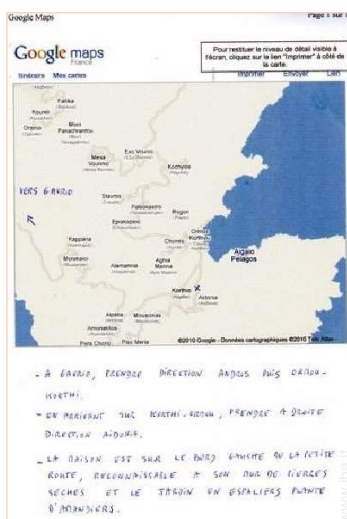 Google Maps
Page 1 sur
Google maps
France
Pour restituer le niveau de détail visible à
l'écran, cliquez sur le lien "Imprimer" à côté de
la carte.
Itinéraire Mes cartes
Imprimer Envoyer Lien
Katilia
Kourelí
Oreino
Moni
Panachrantou
Mesa
Vouniou
Exo Vouniou
Kochylos
VERS GAVRIO
Stavros
Episkopeio
Rogon
Kappariá
Chonés
Ormos
Korthiou
Aigaio
Pelagos
Aghia
Marina
Korthio X
Aidonia
Aipatia
Mousionas
Amonakliou
Piera Chorio
Plso Meria
©2010 Google - Données cartographiques ©2010 Tele Atlas
- A GAVRIO, PRENDRE DIRECTION ANDROS PUIS ORMOU-
KORTHI.
- EN ARRIVANT SUR KORTHI-ORMOU, PRENDRE A DROITE
DIRECTION AIDONIA.
- LA MAISON EST SUR LE BORD GAUCHE DE LA PETITE
ROUTE, RECONNAISSABLE A SON MUR DE PIERRES
SECHES ET LE JARDIN EN ESPALIERS PLANTE
D'AMANDIERS.